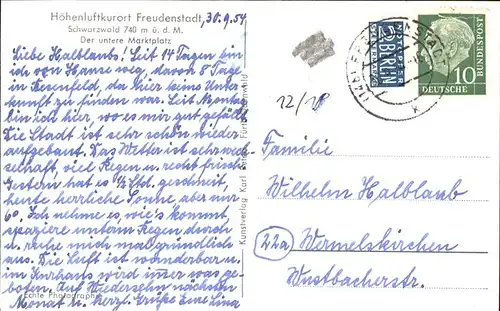 Höhenluftkurort Freudenstadt, 30.9.54
Schwarzwald 740 m ü. d. M.
Der untere Marktplatz
Liebe Halblaubs! Seit 14 Tagen bin
ich von Hause weg, davon 8 Tage
in da hier keine Unter-
kunft zu finden war. Seit Montag
bin ich hier, wo es mir gut gefällt.
Die Stadt ist sehr schön wieder
aufgebaut. Das Wetter ist sehr wech-
selhaft, viel Regen u. recht frisch.
Gestern hat es ½ Std. geschneit,
heute herrliche Sonne aber nur
6°. Ich nehme es, wie's kommt,
spaziere unterm Regen durch
u. ruhe mich mal gründlich
aus. Die Luft ist wunderbar u.
im Kurhaus wird immer was ge-
boten. Auf Wiedersehn nächsten
Echte Photographie
Monat u. herzl. Grüße Eure Lina
Kunstverlag Karl
12/18
NOTOPFER
2 BERLIN
STEUERMARKE
10
DEUTSCHE
BUNDESPOST
Familie
Wilhelm Halblaub
(22a) Wermelskirchen
Wustbacherstr.